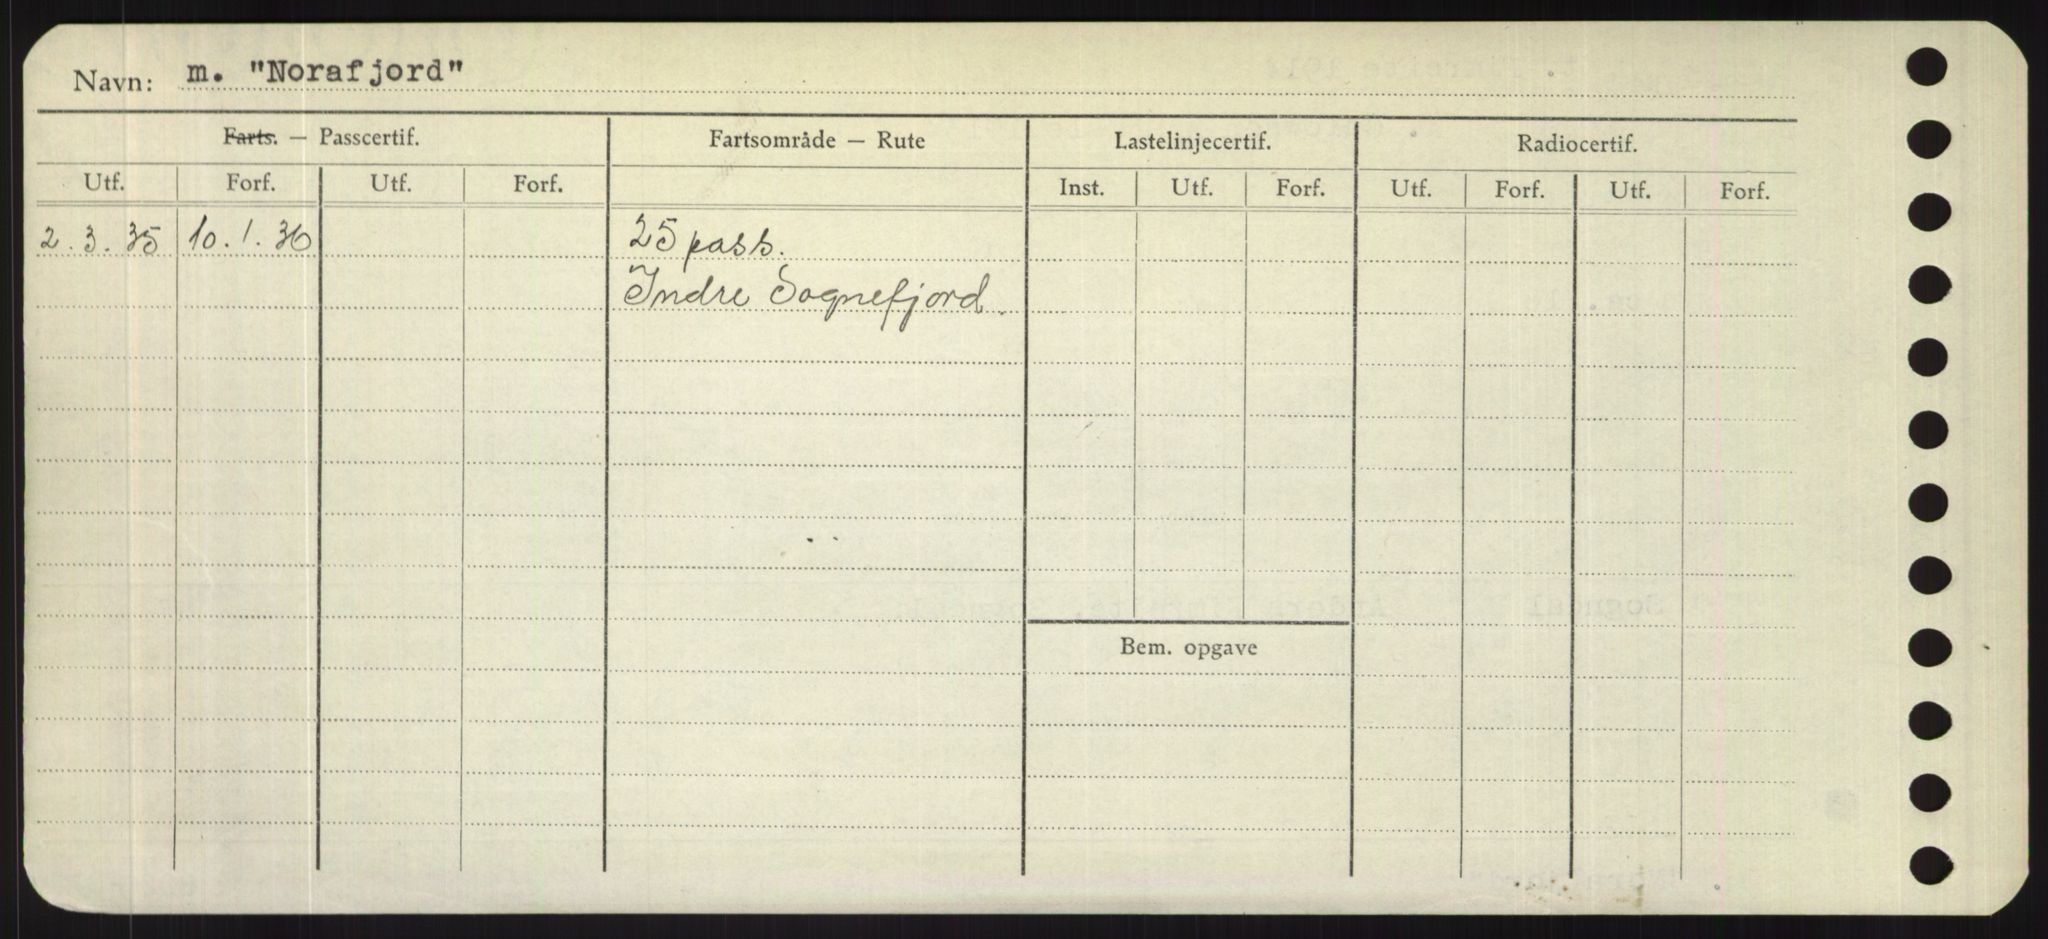 Navn: m. "Norafjord"
Farts. — Passcertif. Fartsområde — Rute Lastelinjecertif. Radiocertif.
Utf. Forf. Utf. Forf. Inst. Utf. Forf. Utf. Forf. Utf. Forf.
2.3.35 10.1.36 25 pass.
Indre Sognefjord.
Bem. opgave